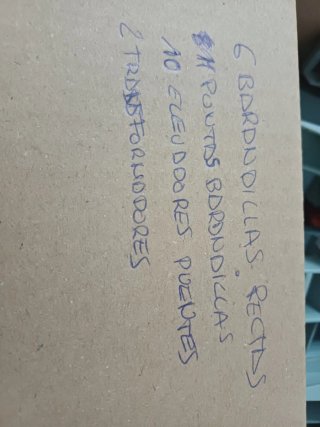 6 BARANDILLAS RECTAS
11 PUNTAS BARANDILLAS
10 ELEVADORES PUENTES
2 TRANSFORMADORES